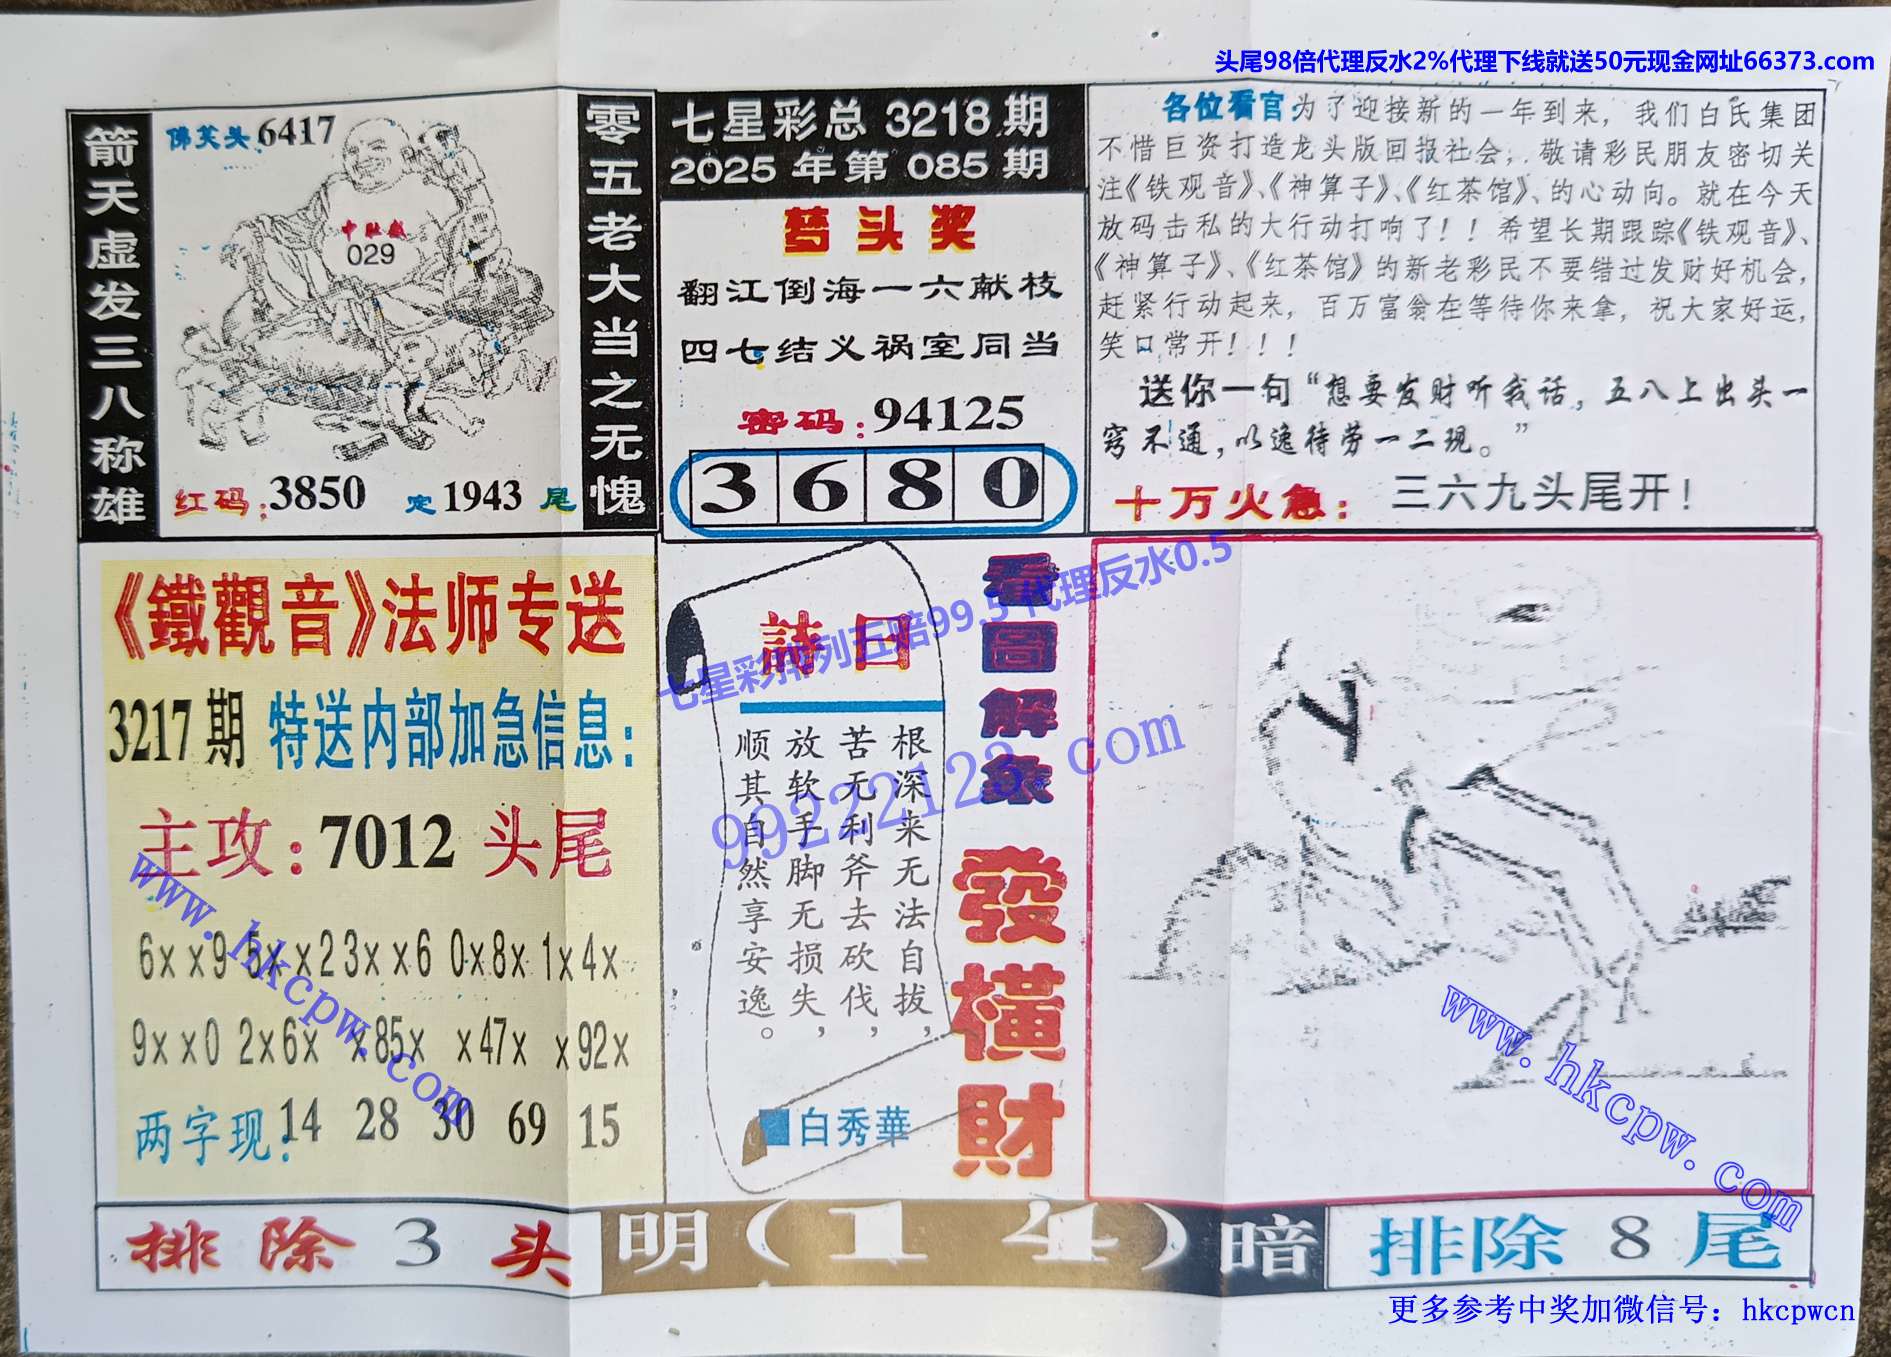 头尾98倍代理反水2%代理下线就送50元现金网址66373.com
箭天虚发三八称雄
佛笑头:6417
中肚藏
029
红码:3850 定1943尾
零五老大当之无愧
七星彩总 3218 期
2025 年第 085 期
梦头奖
翻江倒海一六献枝
四七结义祸室同当
密码:94125
3 6 8 0
各位看官:为了迎接新的一年到来，我们白氏集团
不惜巨资打造龙头版回报社会，敬请彩民朋友密切关
注《铁观音》、《神算子》、《红茶馆》、的心动向。就在今天
放码击私的大行动打响了！！希望长期跟踪《铁观音》、
《神算子》、《红茶馆》的新老彩民不要错过发财好机会，
赶紧行动起来，百万富翁在等待你来拿，祝大家好运，
笑口常开！！！
送你一句“想要发财听我话，五八上出头一
窍不通，以逸待劳一二现。”
十万火急：三六九头尾开！
《鐵觀音》法师专送
3217期 特送内部加急信息：
主攻：7012 头尾
6xx9 5xx2 3xx6 0x8x 1x4x
9xx0 2x6x x85x x47x x92x
两字现：14 28 30 69 15
詩曰
根深来无法自拔，
苦无利斧去砍伐，
放软手脚无损失，
顺其自然享安逸。
白秀華
看圖解象
發橫財
七星彩排列五赔99.5 代理反水0.5
99222123.com
www.hkcpw.com
www.hkcpw.com
排除 3 头
明(14)暗
排除 8 尾
更多参考中奖加微信号：hkcpwcn